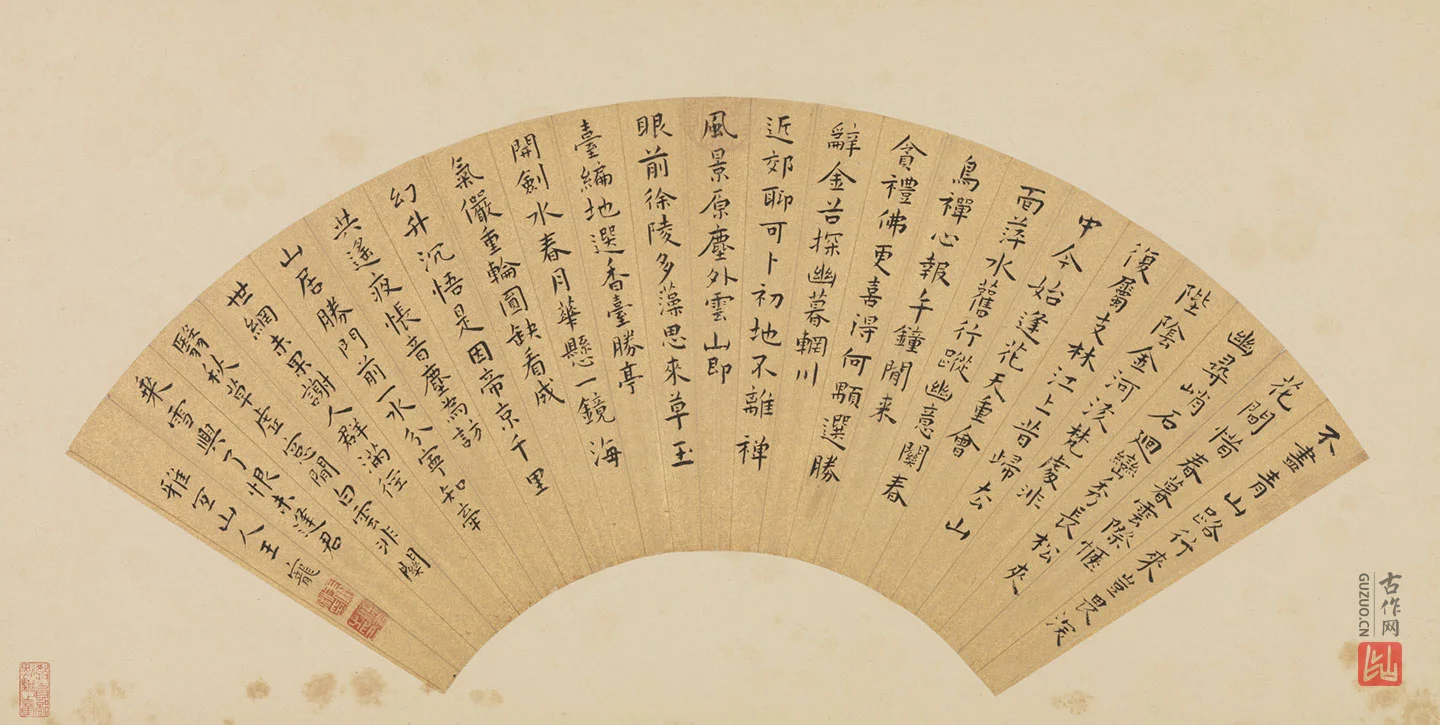 不盡青山路行來豈畏深
花間惜春暮雲際愜
幽尋峭石廻巒秀長松夾
陛陰金河梵處非
復屬支林江上昔歸去山
中今始逢花天重會
面萍水舊行蹤幽意關春
鳥禪心報午鐘閒來
貪禮佛更喜得何顒選勝
辭金谷探幽慕輞川
近郊聊可卜初地不離禅
風景原塵外雲山即
眼前徐陵多藻思來草玉
臺編地選香臺勝亭
開劍水春月華懸一鏡海
氣儼重輪圓缺看成
幻升沉悟是因帝京千里
共遙夜悵音塵為訪
山居勝門前一水分寧知牽
世網未果謝人群滿徑
翳秋草虛窓閒白雲非關
乘雪興了恨未逢君
雅宜山人王寵
古作网
GUZUO.CN